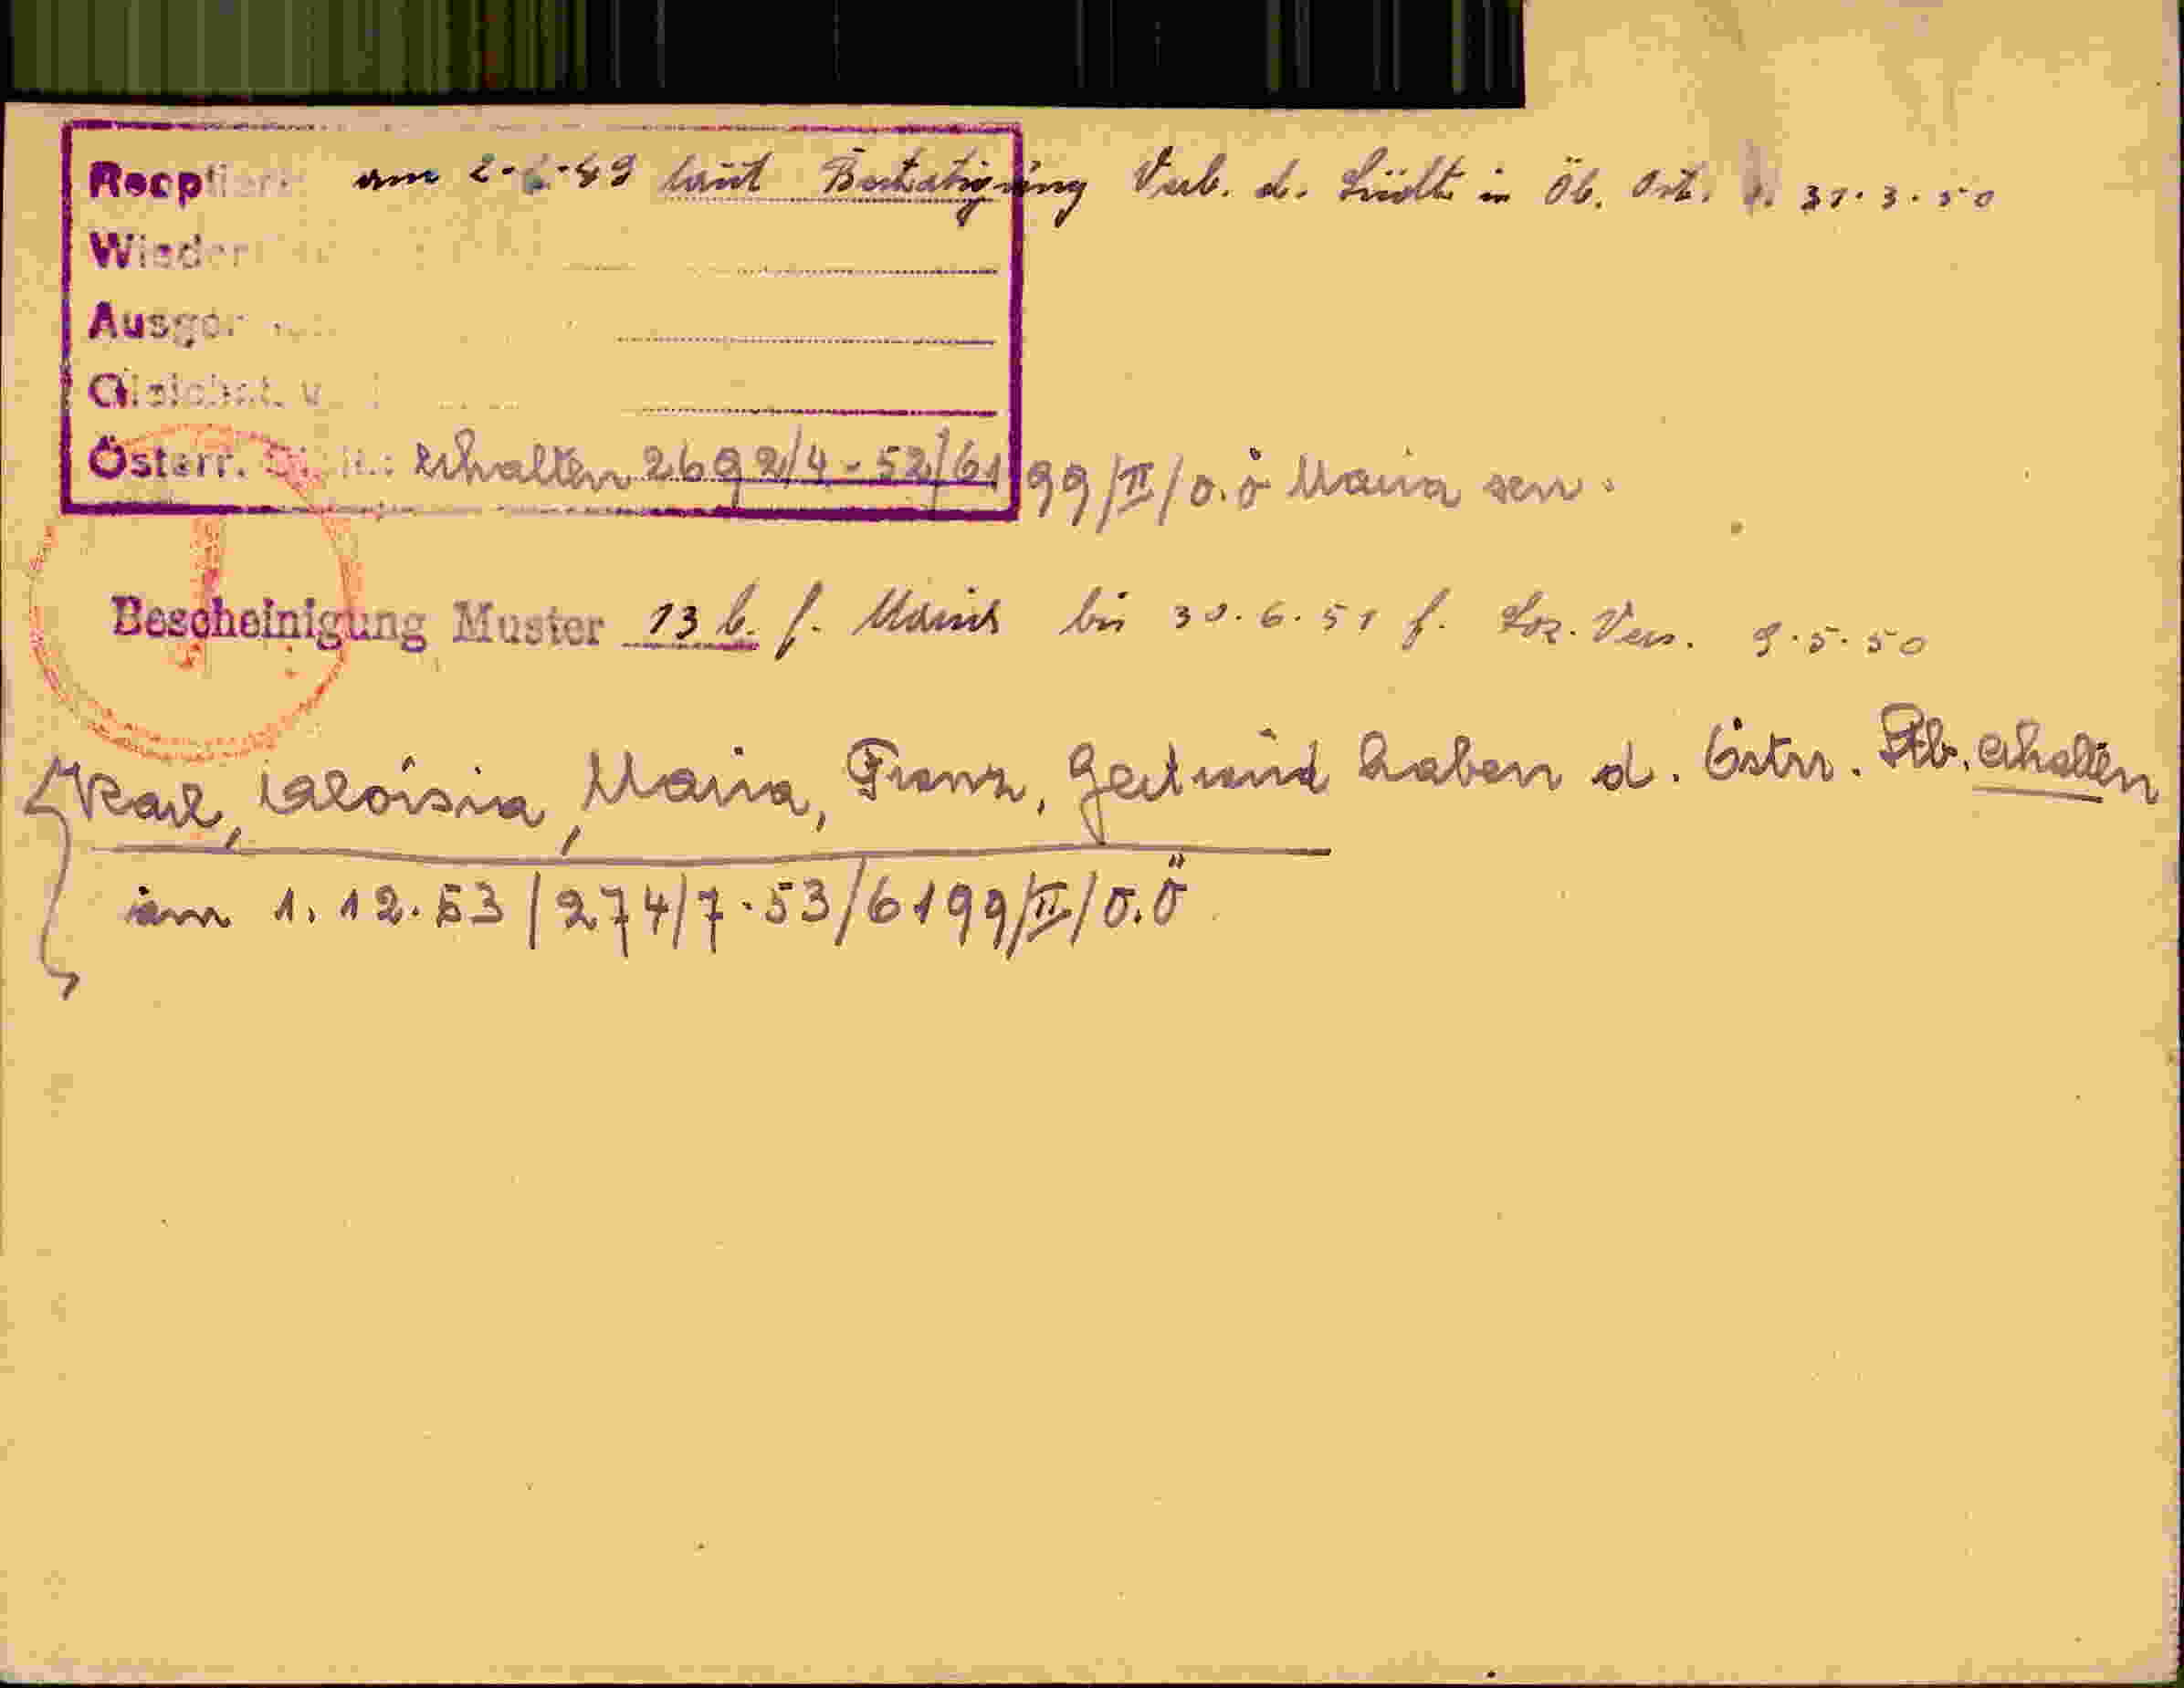 am 2.6.49 laut Bestätigung Verb. d. Südt. in Öb. Öst. v. 31.3.50
Österr. erhalten 2692/4-52/6199/II/O.Ö Maria sen.
Bescheinigung Muster 13 b. f. bis 30.6.51 f. Soz. Vers. 9.5.50
Karl, Aloisia, Maria, Franz, Gertraud haben d. Östrr. Stb. erhalten
am 1.12.53/274/7.53/6199/II/O.Ö